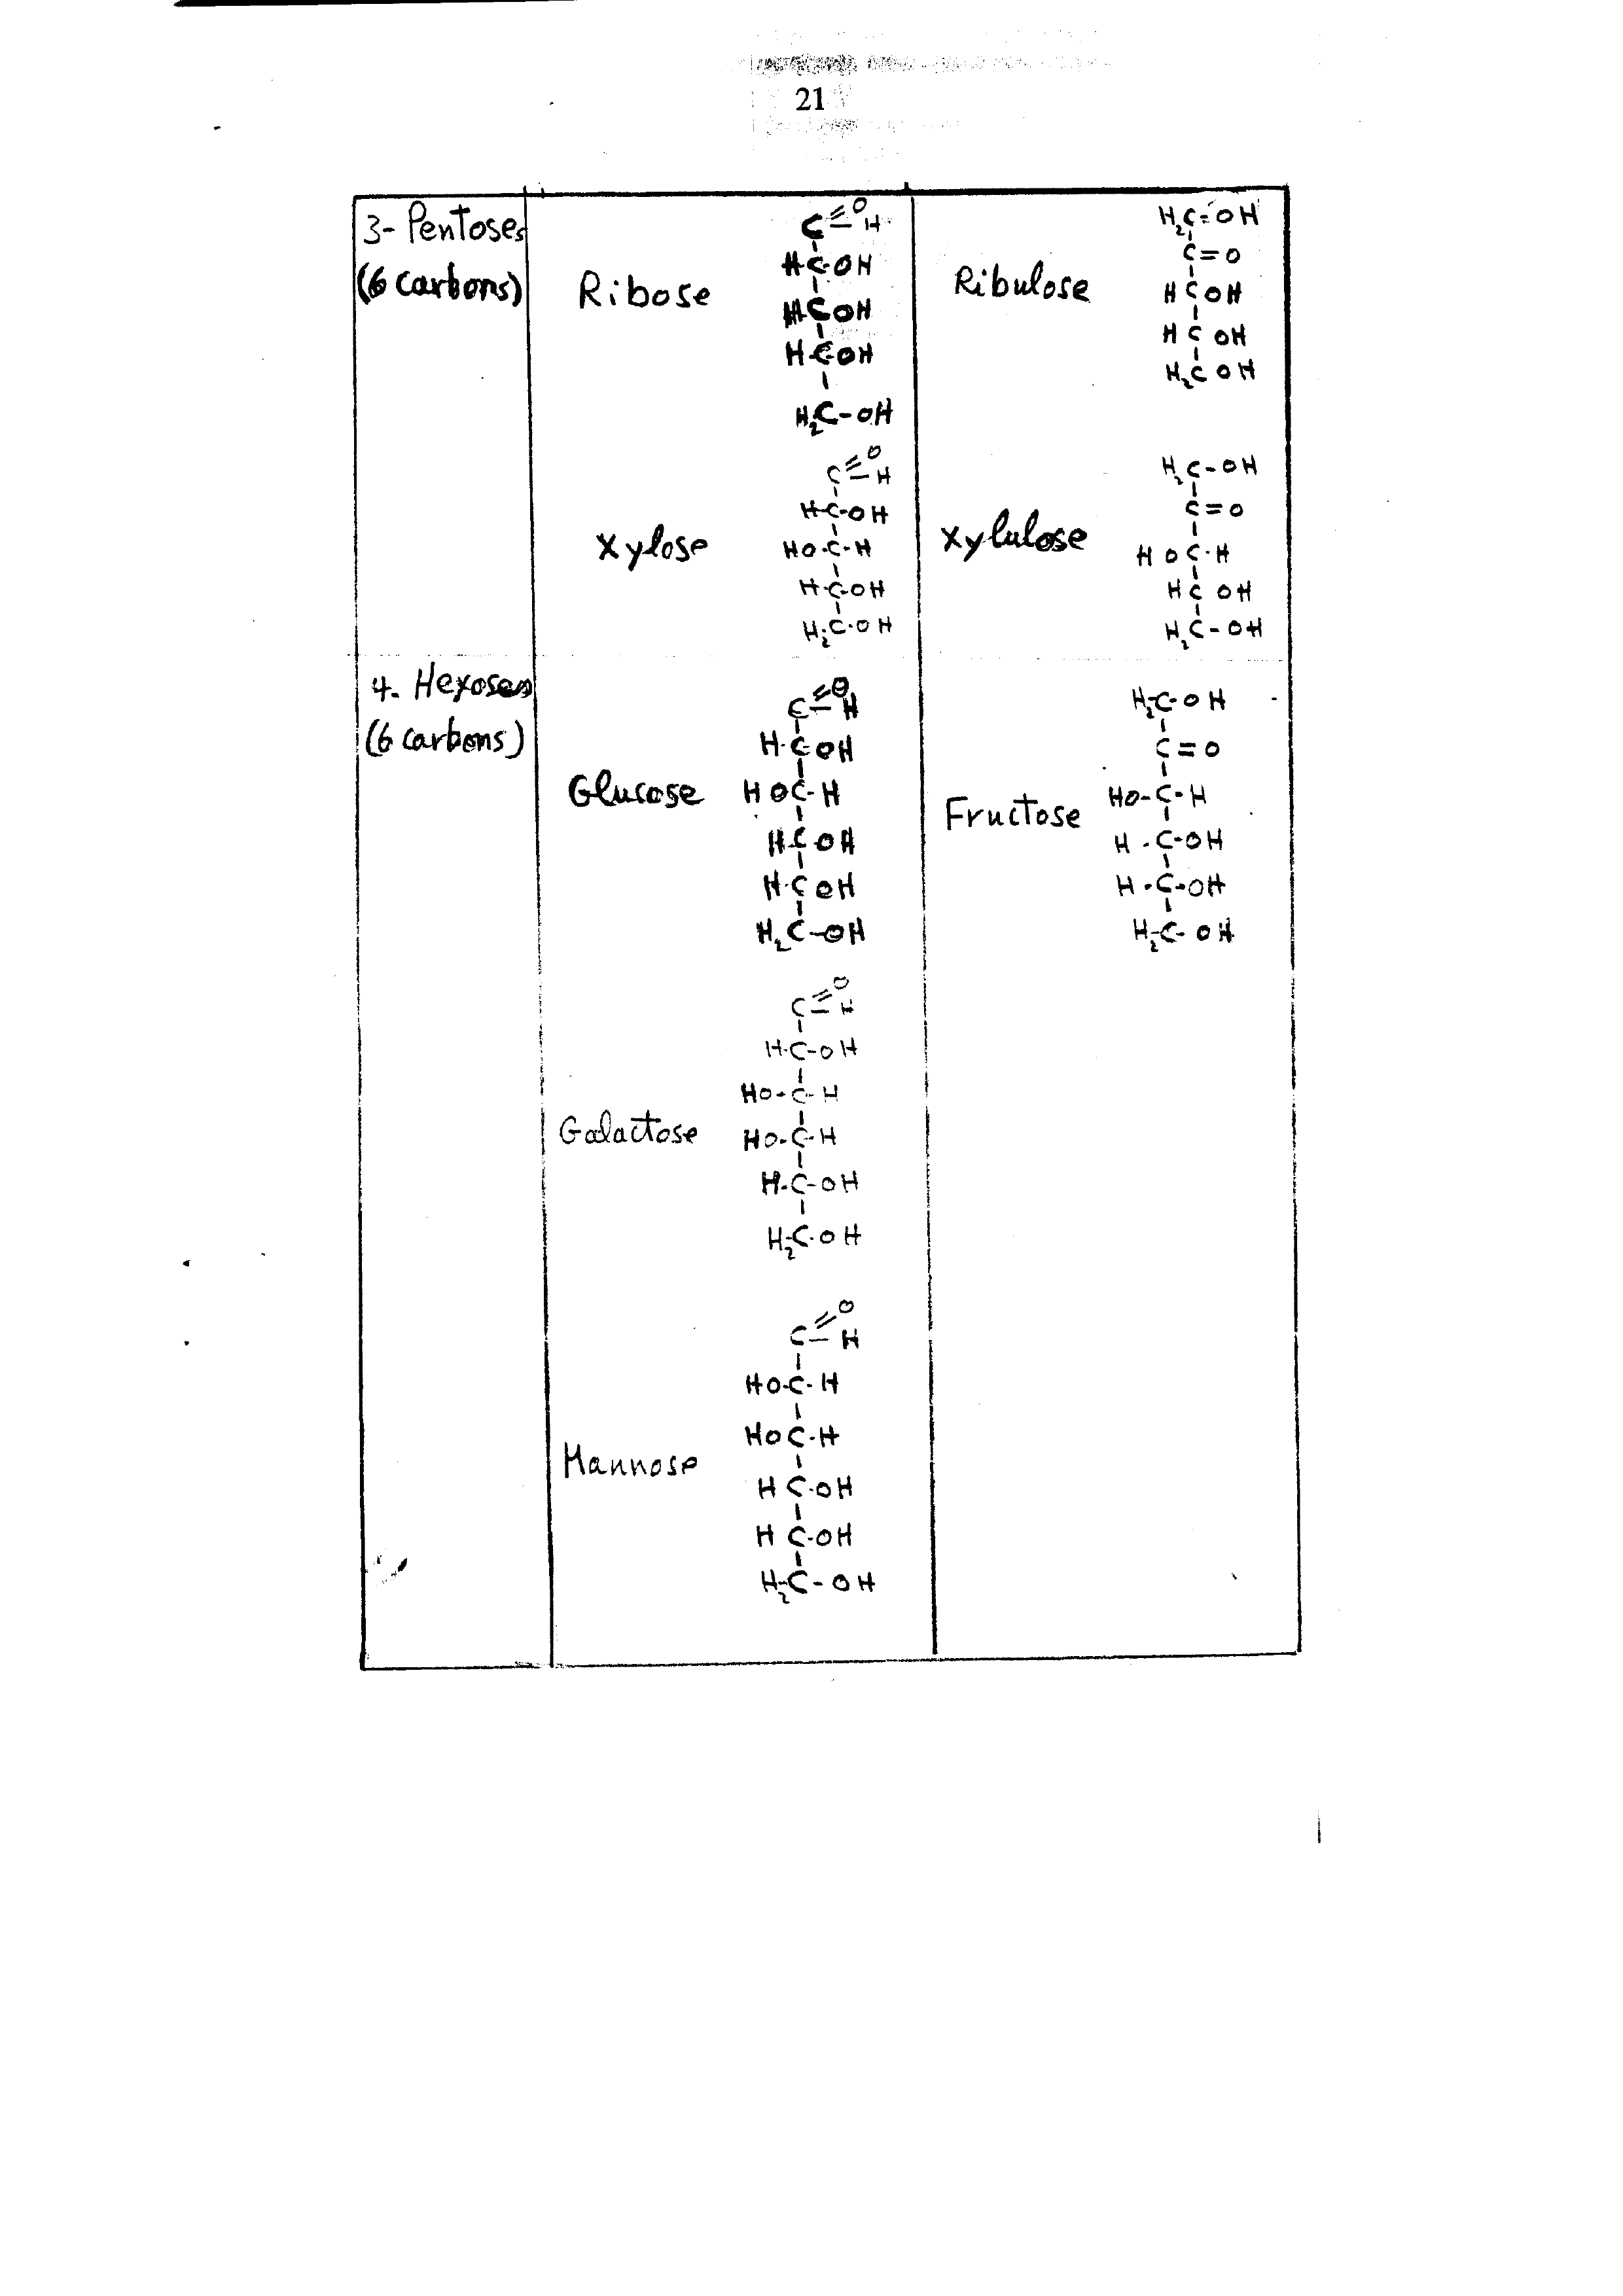 21
3- Pentoses
(6 carbons)
Ribose
C=O
-H
H-C-OH
H-C-OH
H-C-OH
H₂C-OH
Ribulose
H₂C-OH
C=O
H C OH
H C OH
H₂C OH
Xylose
C=O
-H
H-C-OH
HO-C-H
H-C-OH
H₂C-OH
Xylulose
H₂C-OH
C=O
HO C-H
H C OH
H₂C-OH
4- Hexoses
(6 carbons)
Glucose
C=O
-H
H-C OH
HO C-H
H-C OH
H-C OH
H₂C-OH
Fructose
H₂C-OH
C=O
HO-C-H
H-C-OH
H-C-OH
H₂C-OH
Galactose
C=O
-H
H-C-OH
HO-C-H
HO-C-H
H-C-OH
H₂C-OH
Mannose
C=O
-H
HO-C-H
HO C-H
H C-OH
H C-OH
H₂C-OH